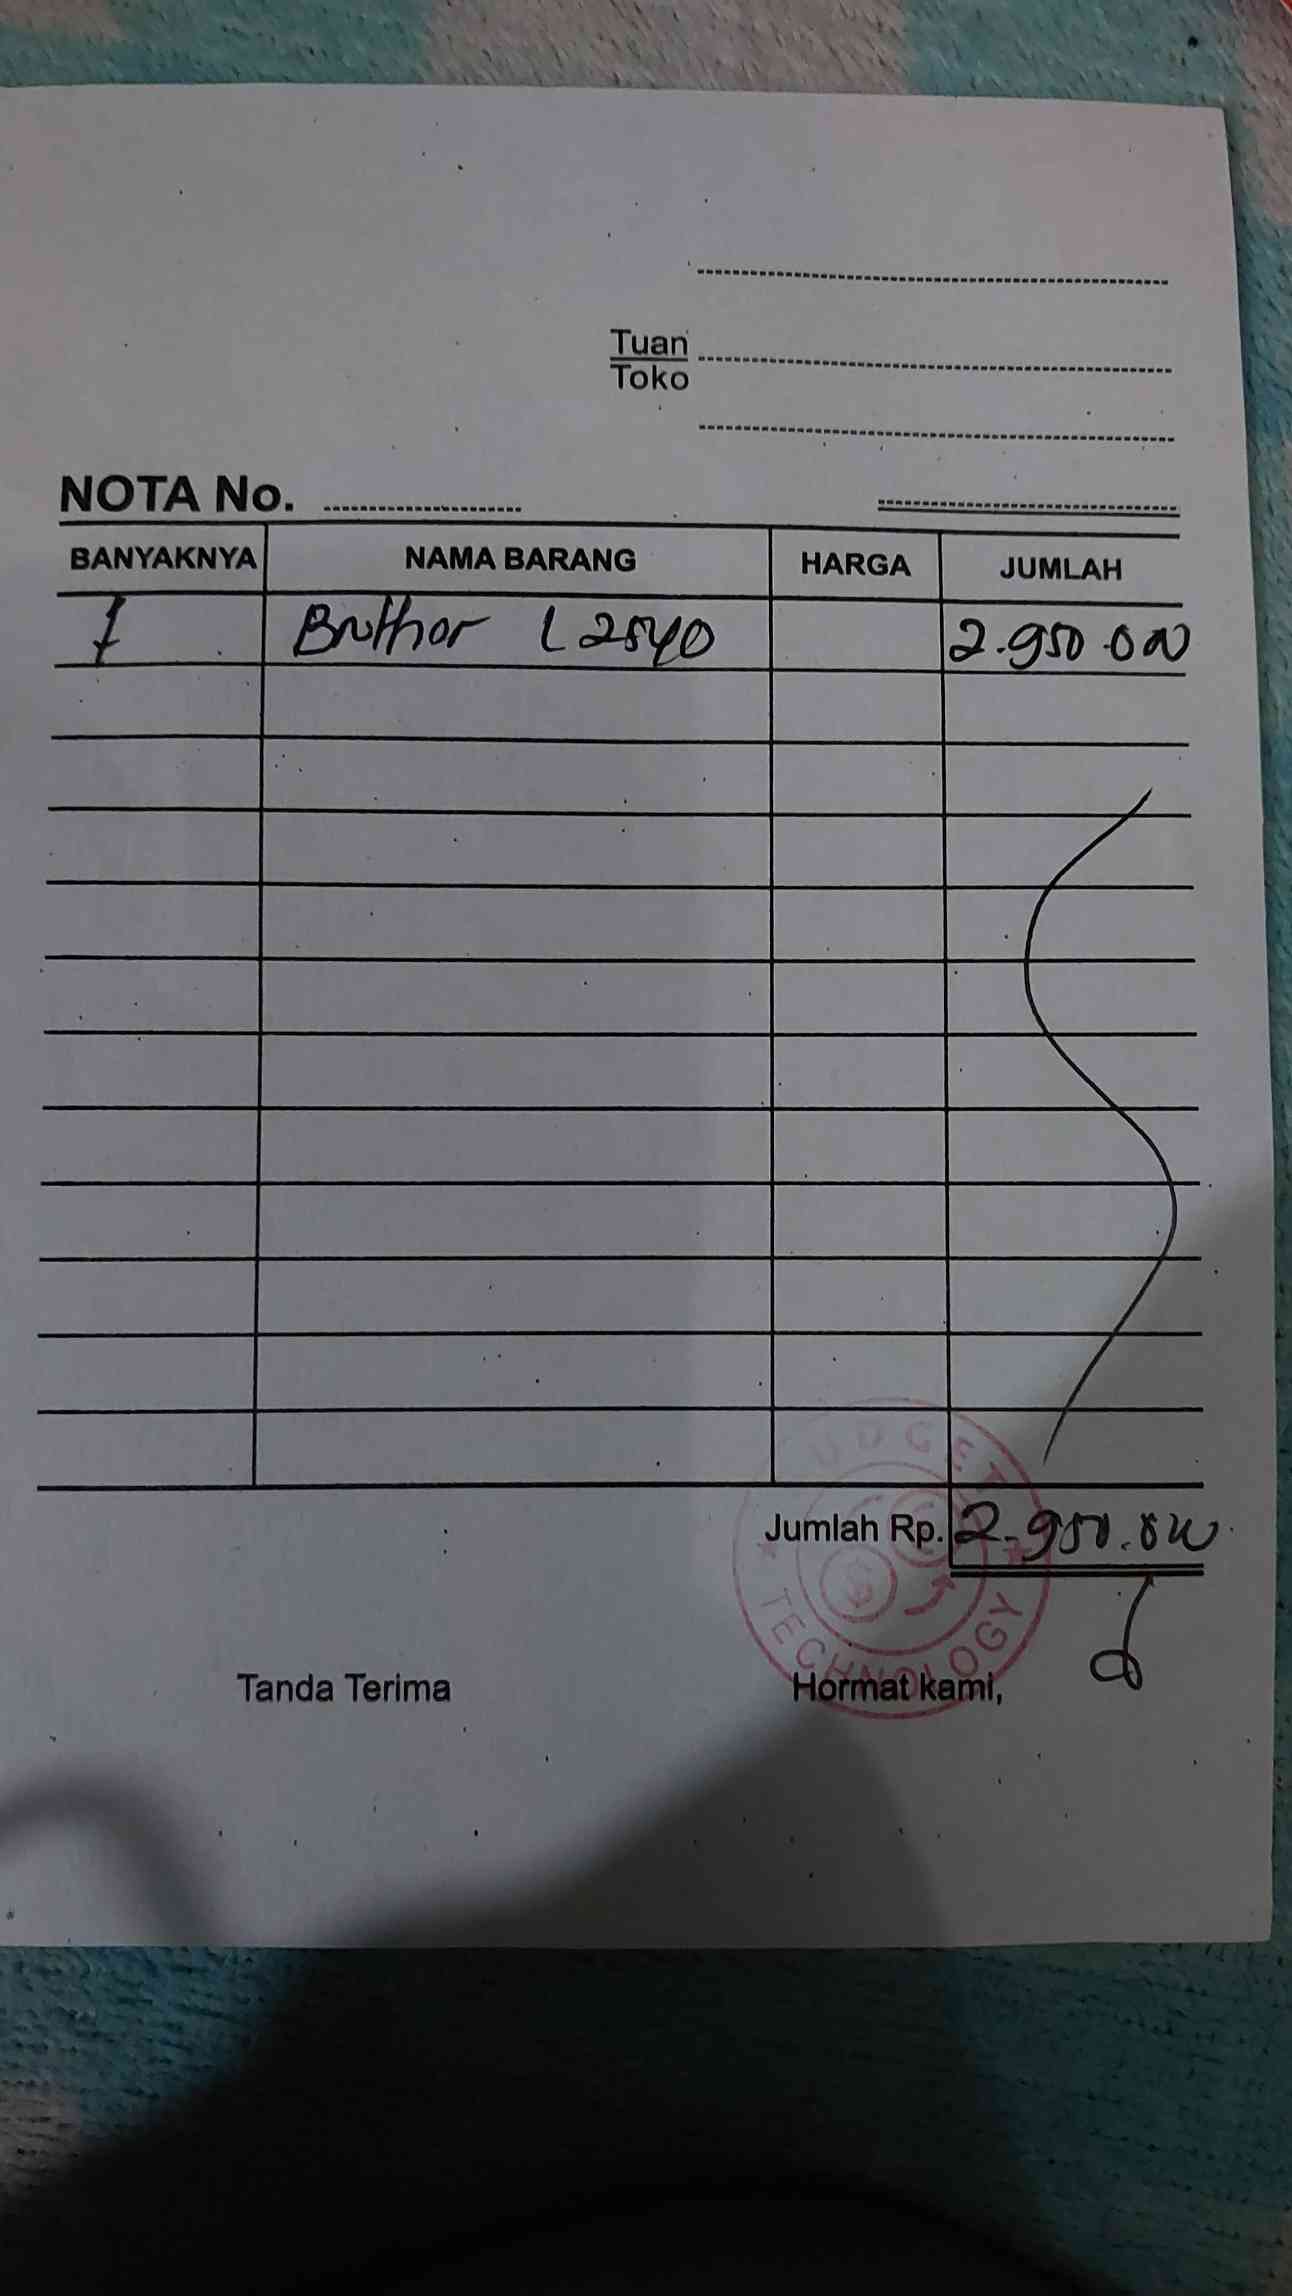 Tuan
Toko
NOTA No.
BANYAKNYA NAMA BARANG HARGA JUMLAH
1 Bruthor L2540 2.950.000
UDGET
Jumlah Rp. 2.950.000
TECHNOLOGY
Tanda Terima Hormat kami,